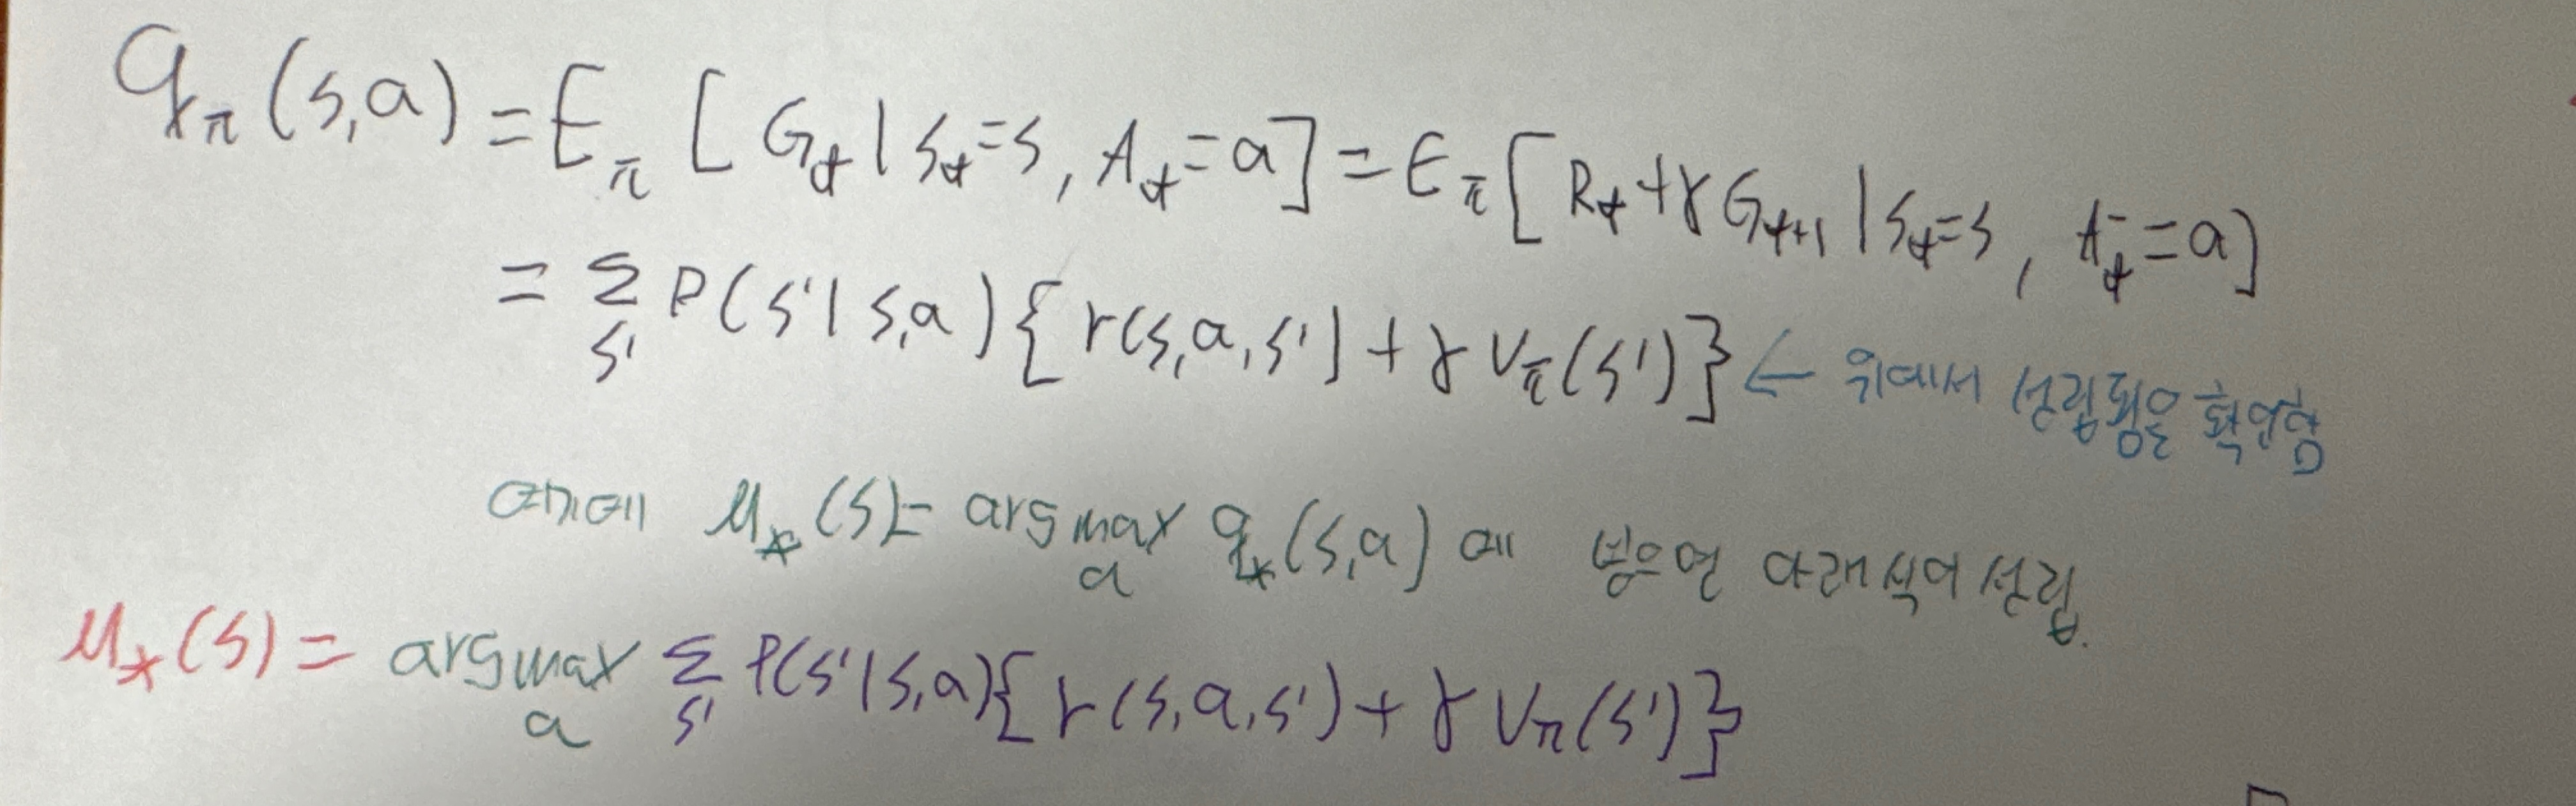 qπ(s,a) = Eπ[Gt | St=s, At=a] = Eπ[Rt+γGt+1 | St=s, At=a]
= Σs' P(s'|s,a){r(s,a,s')+γVπ(s')} ← 위에서 성립됨을 확인함
μ*(s)= argmax a q*(s,a)에 넣으면 아래 식이 성립.
μ*(s) = argmax a Σs' P(s'|s,a){r(s,a,s')+γVπ(s')}